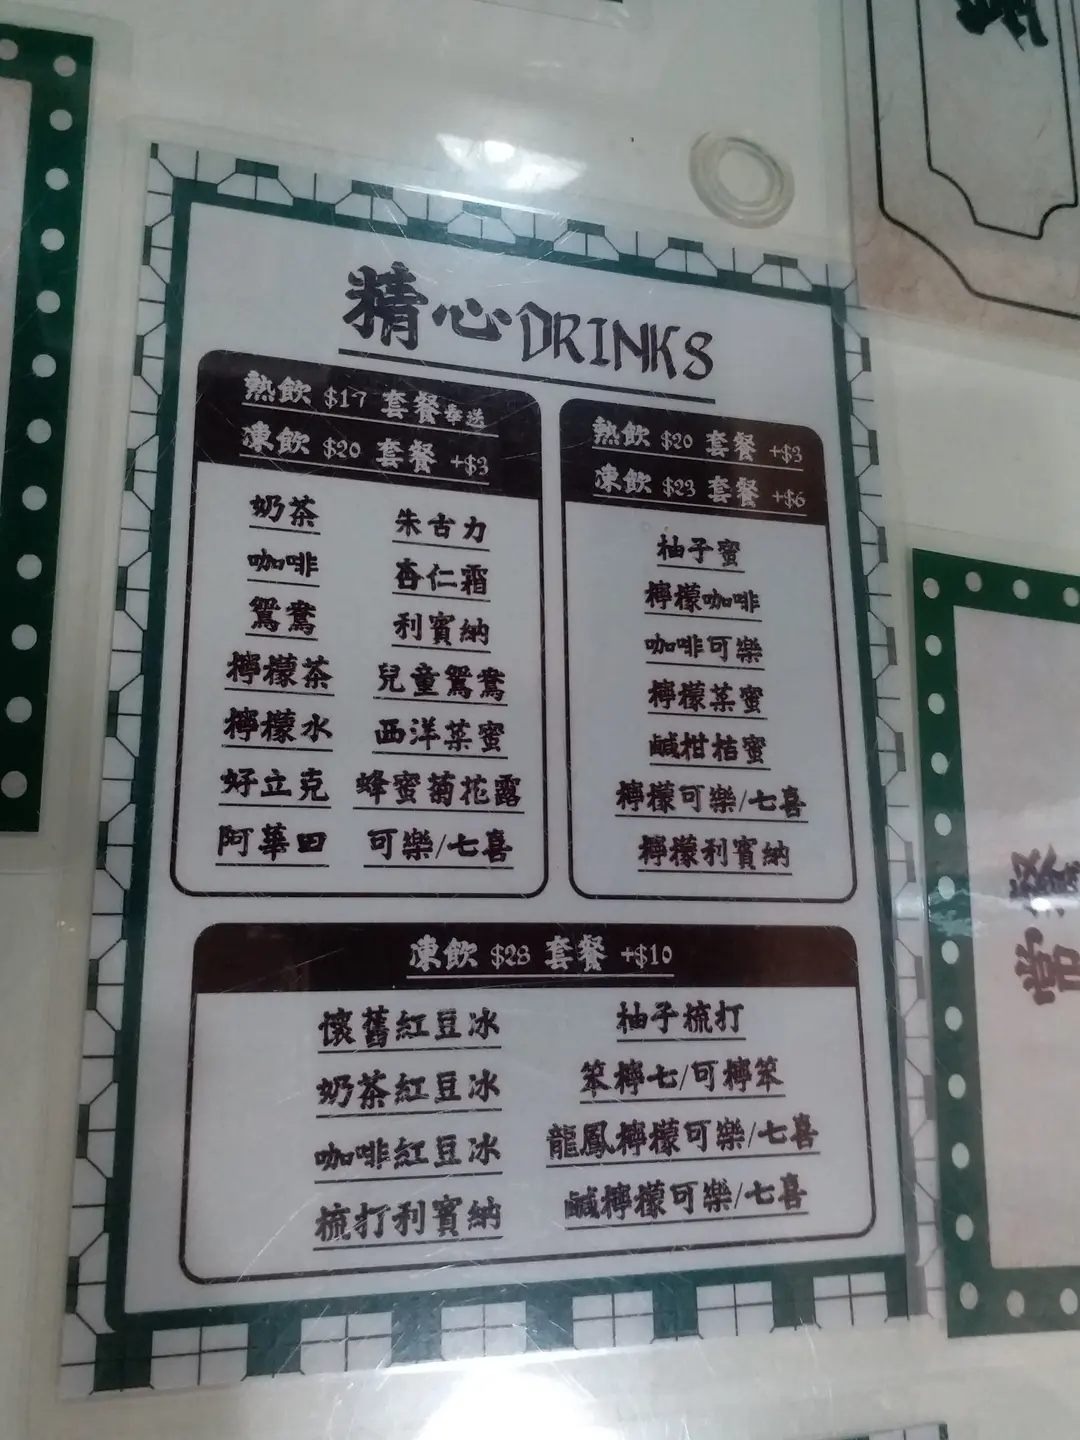 精心DRINKS
熱飲 $17 套餐奉送
凍飲 $20 套餐 +$3
奶茶
咖啡
鴛鴦
檸檬茶
檸檬水
好立克
阿華田
朱古力
杏仁霜
利賓納
兒童鴛鴦
西洋菜蜜
蜂蜜菊花露
可樂/七喜
熱飲 $20 套餐 +$3
凍飲 $23 套餐 +$6
柚子蜜
檸檬咖啡
咖啡可樂
檸檬菜蜜
鹹柑桔蜜
檸檬可樂/七喜
檸檬利賓納
凍飲 $28 套餐 +$10
懷舊紅豆冰
奶茶紅豆冰
咖啡紅豆冰
梳打利賓納
柚子梳打
笨檸七/可檸笨
龍鳳檸檬可樂/七喜
鹹檸檬可樂/七喜
常餐